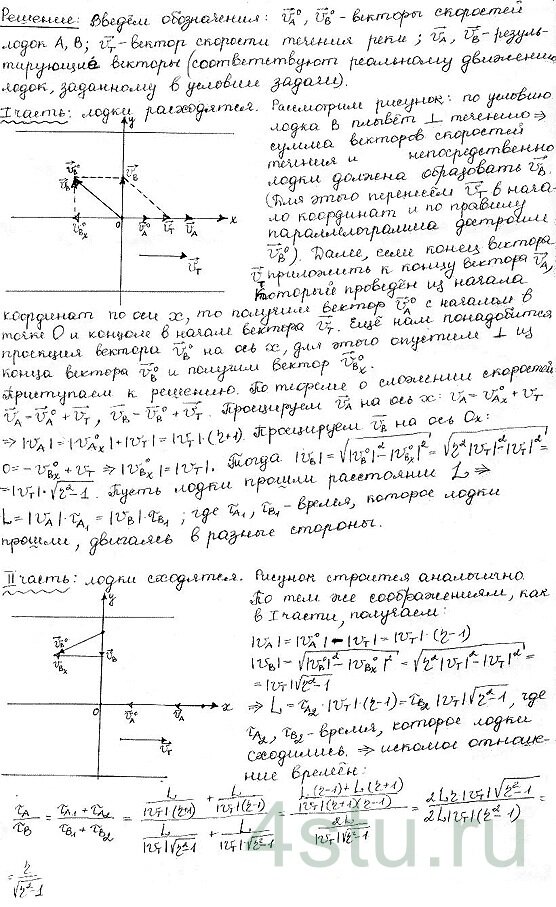 Решение: Введём обозначения: v⃗A°, v⃗B° - векторы скоростей
лодок A, B; v⃗T - вектор скорости течения реки; v⃗A, v⃗B - резуль-
тирующие векторы (соответствуют реальному движению
лодок, заданному в условии задачи).
I часть: лодки расходятся. Рассмотрим рисунок: по условию
лодка B плывёт ⊥ течению ⇒
сумма векторов скоростей
течения и непосредственно
лодки должна образовать v⃗B.
(Для этого перенесём v⃗T в нача-
ло координат и по правилу
параллелограмма достроим
v⃗B°). Далее, если конец вектора
v⃗T приложить к концу вектора v⃗A,
который проведён из начала
координат по оси x, то получим вектор v⃗A° с началом в
точке O и концом в начале вектора v⃗T. Ещё нам понадобится
проекция вектора v⃗B° на ось x, для этого опустим ⊥ из
конца вектора v⃗B° и получим вектор v⃗Bx°.
Приступаем к решению. По теореме о сложении скоростей
v⃗A = v⃗A° + v⃗T, v⃗B = v⃗B° + v⃗T. Проецируем v⃗A на ось x: vA = vAx° + vT
⇒ |vA| = |vAx°| + |vT| = |vT|·(η+1). Проецируем v⃗B на ось Ox:
0 = -vBx° + vT ⇒ |vBx°| = |vT|. Тогда |vB| = √(|vB°|² - |vBx°|²) = √(η²|vT|² - |vT|²) =
= |vT|·√(η²-1). Пусть лодки прошли расстояние L ⇒
L = |vA|·τA1 = |vB|·τB1; где τA1, τB1 - время, которое лодки
прошли, двигаясь в разные стороны.
y
v⃗B°
v⃗B
v⃗Bx°
O
v⃗A°
v⃗T
v⃗A
x
v⃗T
II часть: лодки сходятся. Рисунок строится аналогично
По тем же соображениям, как
в I части, получаем:
|vA| = |vA°| - |vT| = |vT|·(η-1)
|vB| = √(|vB°|² - |vBx°|²) = √(η²|vT|² - |vT|²) =
= |vT|√(η²-1)
⇒ L = τA2·|vT|·(η-1) = τB2 |vT|√(η²-1), где
τA2, τB2 - время, которое лодки
сходились. ⇒ искомое отноше-
ние времён:
y
v⃗B°
v⃗Bx
v⃗B
O
v⃗A°
v⃗A
x
v⃗T
∴ τA/τB = (τA1 + τA2)/(τB1 + τB2) = (L/(|vT|(η+1)) + L/(|vT|(η-1)))/(L/(|vT|√(η²-1)) + L/(|vT|√(η²-1))) = ((L(η-1) + L(η+1))/(|vT|(η+1)(η-1)))/(2L/(|vT|√(η²-1))) = 2Lη|vT|√(η²-1)/(2L|vT|(η²-1)) =
= η/√(η²-1)
4stu.ru